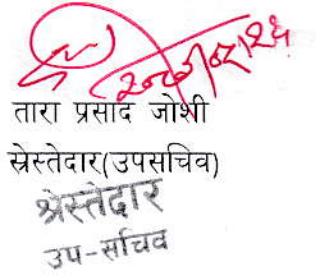 तारा प्रसाद जोशी
स्रेस्तेदार(उपसचिव)
श्रेस्तेदार
उप-सचिव